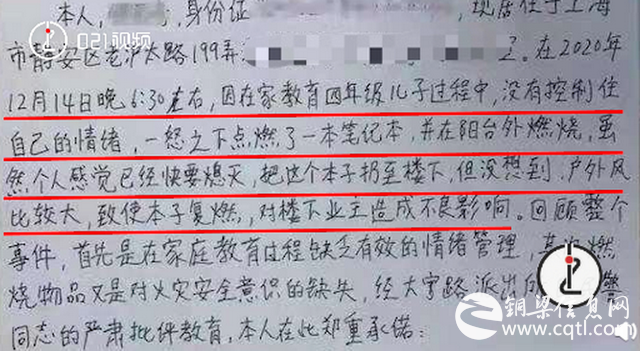 021视频
本人,身份证,现居住于上海
市静安区老沪太路199弄 在2020年
12月14日晚6:30左右,因在家教育四年级儿子过程中,没有控制住
自己的情绪,一怒之下点燃了一本笔记本,并在阳台外燃烧,虽
然个人感觉已经快要熄灭,把这个本子扔至楼下,但没想到,户外风
比较大,致使本子复燃,对楼下业主造成不良影响。回顾整个
事件,首先是在家庭教育过程缺乏有效的情绪管理,其 燃
烧物品又是对火灾安全意识的缺失,经大宁路派出所 警
同志的严肃批评教育,本人在此郑重承诺:
铜梁信息网
www.cqtl.com